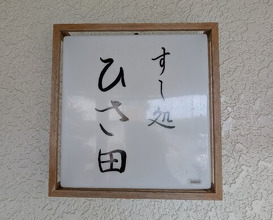 すし処
ひさ田